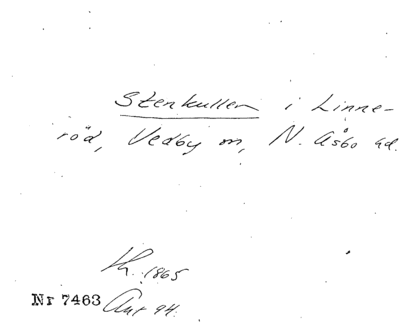 Stenkullen i Linne-
röd, Vedby sn, N. Åsbo hd.
1865
Nr 7463 Ant 94.